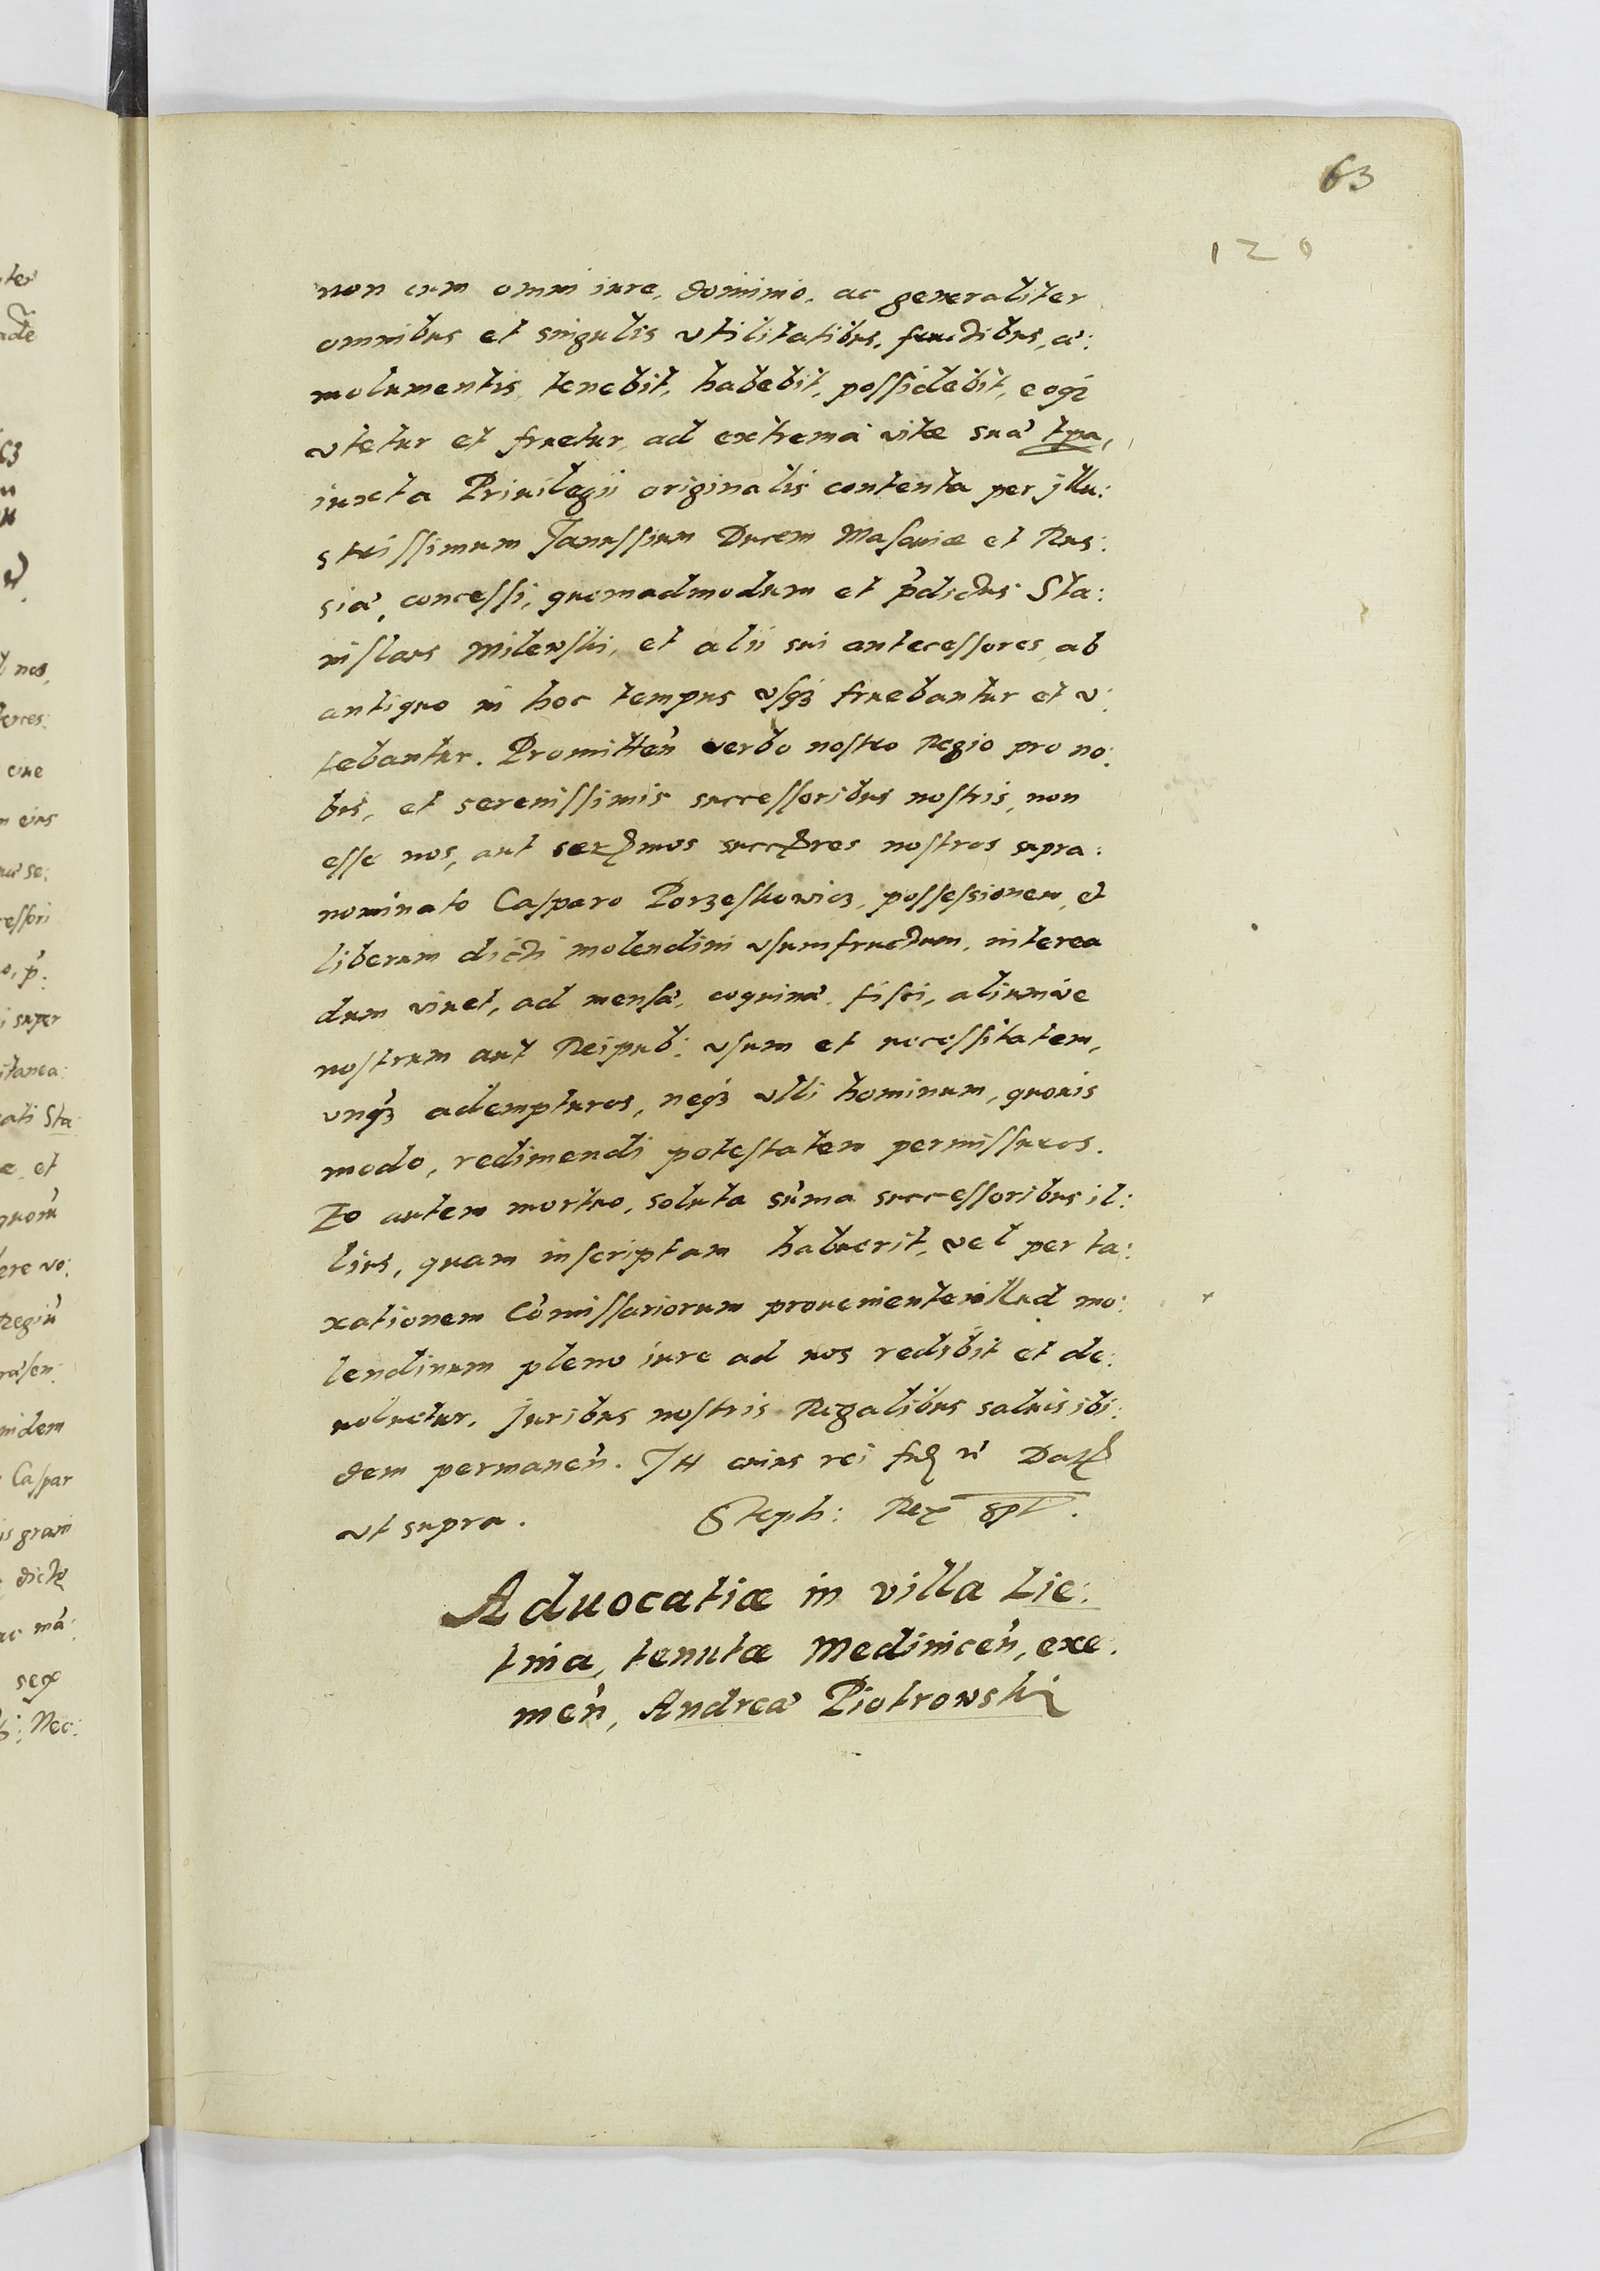 63
120
non cum omni iure, dominio, ac generaliter
omnibus et singulis vtilitatibus, fructibus, e:
molumentis, tenebit, habebit, possidebit, eoq3
vtetur et fruetur, ad extrema vitæ suæ tpa,
iuxta Priuilegii originalis contenta per jllu:
strissimum Janussium Ducem Masouiæ et Rus:
siæ, concessi, quemadmodum et p̃dictus Sta:
nislaus Milewski, et alii sui antecessores, ab
antiquo in hoc tempus vsq3 fruebantur et v:
tebantur. Promitteñ verbo nostro Regio pro no:
bis, et serenissimis successoribus nostris, non
esse nos, aut sermos succres nostros supra:
nominato Casparo Porzeskowicz, possessionem, et
liberum dicti molendini vsumfructum, interea
dum viuet, ad mensæ, coquinæ, fisci, aliumve
nostrum aut Reipub: vsum et necessitatem,
vnq3 adempturos, neq3 vlli hominum, quouis
modo, redimendi potestatem permissuros.
Eo autem mortuo, soluta sum̃a successoribus il:
lius, quam inscriptam habuerit, vel per ta:
xationem Com̃issariorum prouenientem illud mo:
lendinum pleno iure ad nos redibit et de:
uoluetur. Juribus nostris Regalibus saluis ibi:
dem permaneñ. In cuius rei Datt
vt supra. Steph: Rex spt.
Aduocatiæ in villa Lie:
tnia, tenutæ Mediniceñ, exe:
meñ, Andreæ Piotrowski